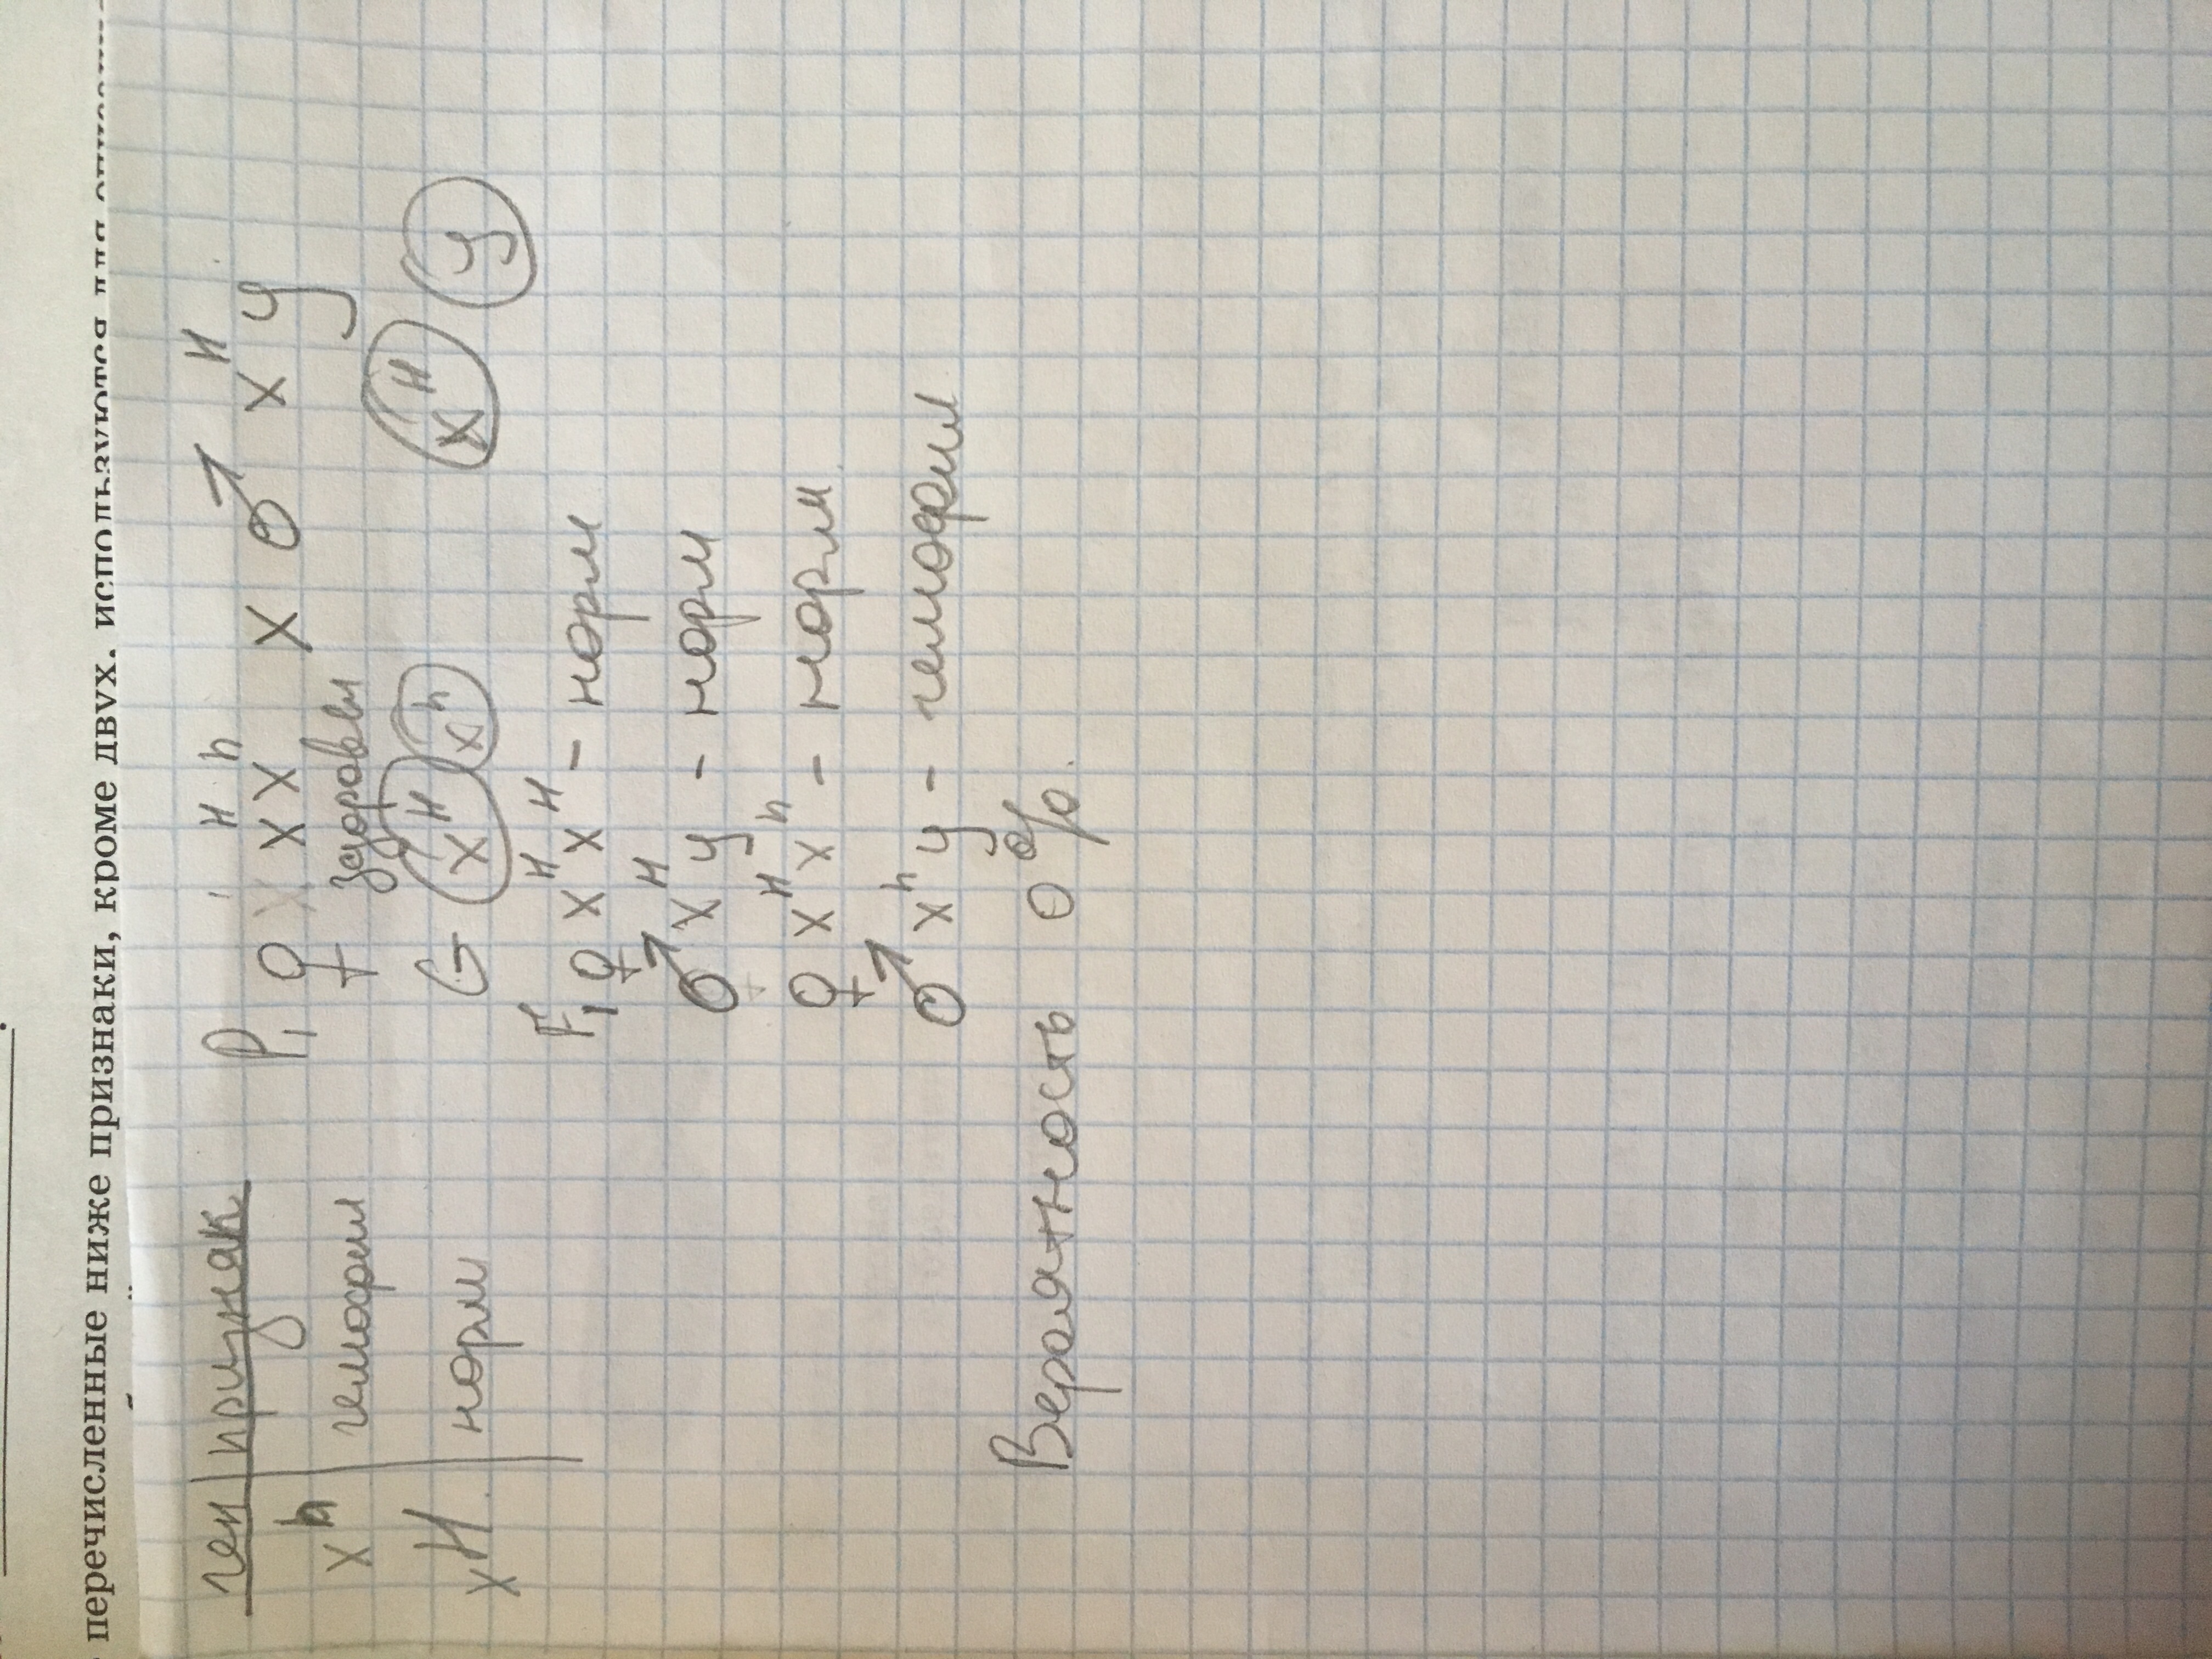 перечисленные ниже признаки, кроме двух. используются для
ген | признак
X^h | гемофил
X^H | норм
P₁ ♀ X^H X^h X ♂ X^H У
здоровы
G X^H X^h X^H У
F₁ ♀ X^H X^H - норм
♂ X^H У - норм
♀ X^H X^h - норм
♂ X^h У - гемофил
Вероятность 0%.